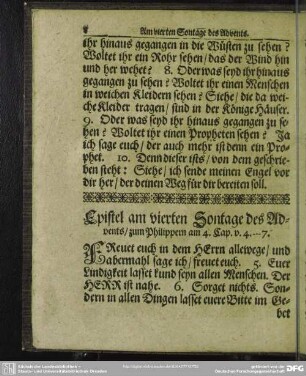 8 Am vierten Sontage des Advents.
ihr hinaus gegangen in die Wüsten zu sehen?
Woltet ihr ein Rohr sehen/das der Wind hin
und her wehet? 8. Oder was seyd ihr hinaus
gegangen zu sehen? Woltet ihr einen Menschen
in weichen Kleidern sehen? Siehe/ die da wei-
che Kleider tragen/ sind in der Könige Häuser.
9. Oder was seyd ihr hinaus gegangen zu se-
hen? Woltet ihr einen Propheten sehen? Ja
ich sage euch/ der auch mehr ist denn ein Pro-
phet. 10. Denn dieser ists/ von dem geschrie-
ben stehet: Siehe/ ich sende meinen Engel vor
dir her/ der deinen Weg für dir bereiten soll.
Epistel am vierten Sontage des Ad-
vents/ zun Philippern am 4. Cap. v. 4.--7.
FReuet euch in dem HErrn allewege/ und
abermahl sage ich/ freuet euch. 5. Euer
Lindigkeit lasset kund seyn allen Menschen. Der
HERR ist nahe. 6. Sorget nichts. Son-
dern in allen Dingen lasset euere Bitte im Ge-
bet